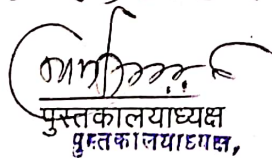 पुस्तकालयाध्यक्ष
पुस्तकालयाध्यक्ष,